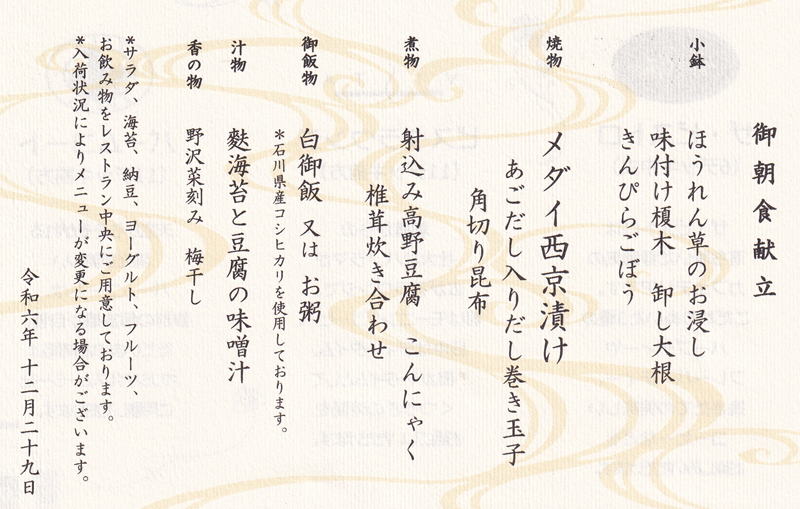 御朝食献立
小鉢
ほうれん草のお浸し
味付け榎木　卸し大根
きんぴらごぼう
焼物
メダイ西京漬け
あごだし入りだし巻き玉子
角切り昆布
煮物
射込み高野豆腐　こんにゃく
椎茸炊き合わせ
御飯物
白御飯　又は　お粥
*石川県産コシヒカリを使用しております。
汁物
麩海苔と豆腐の味噌汁
香の物
野沢菜刻み　梅干し
*サラダ、海苔、納豆、ヨーグルト、フルーツ、
お飲み物をレストラン中央にご用意しております。
*入荷状況によりメニューが変更になる場合がございます。
令和六年　十二月二十九日